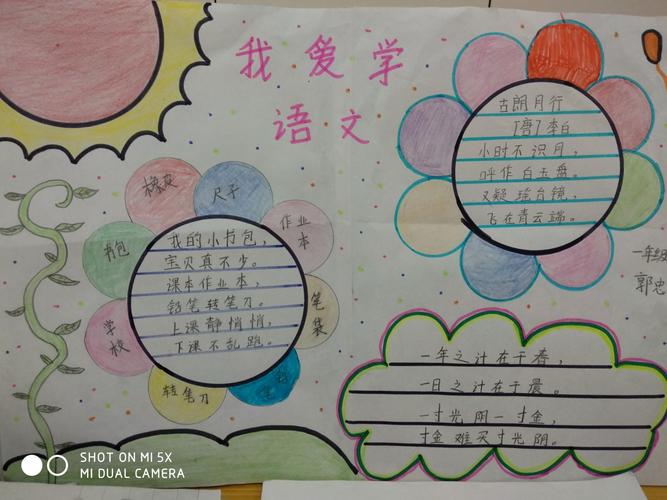 我爱学
语文
古朗月行
[唐]李白
小时不识月,
呼作白玉盘。
又疑瑶台镜,
飞在青云端。
一年级
郭忠
橡皮
尺子
作业
本
书包
笔
袋
学
校
转笔刀
我的小书包,
宝贝真不少。
课本作业本,
铅笔转笔刀。
上课静悄悄,
下课不乱跑。
一年之计在于春,
一日之计在于晨。
一寸光阴一寸金,
寸金难买寸光阴。
SHOT ON MI 5X
MI DUAL CAMERA